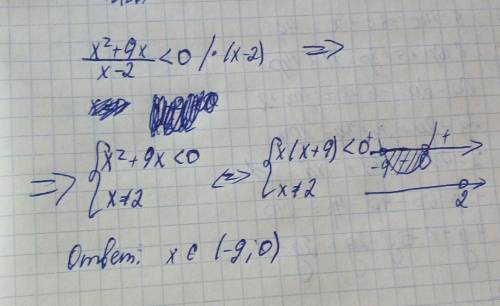 x²+9x / x-2 <0 /·(x-2) =>
=> { x²+9x<0 <=> { x(x+9)<0 + - +
x≠2 x≠2 -9 0
2
Ответ: x ∈ (-9;0)